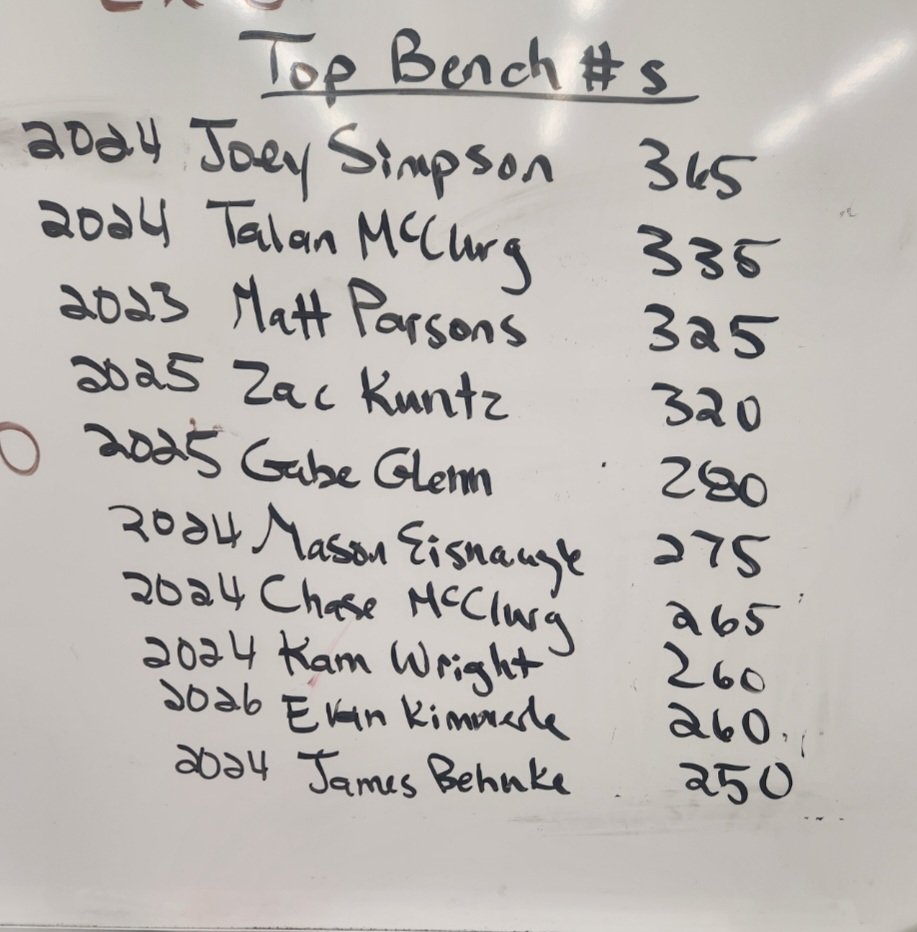 Top Bench #s
2024 Joey Simpson 365
2024 Talan McClurg 335
2023 Matt Parsons 325
2025 Zac Kuntz 320
2025 Gabe Glenn 280
2024 Mason Eisnaugle 275
2024 Chase McClurg 265
2024 Kam Wright 260
2026 Evan 260
2024 James Behnke 250